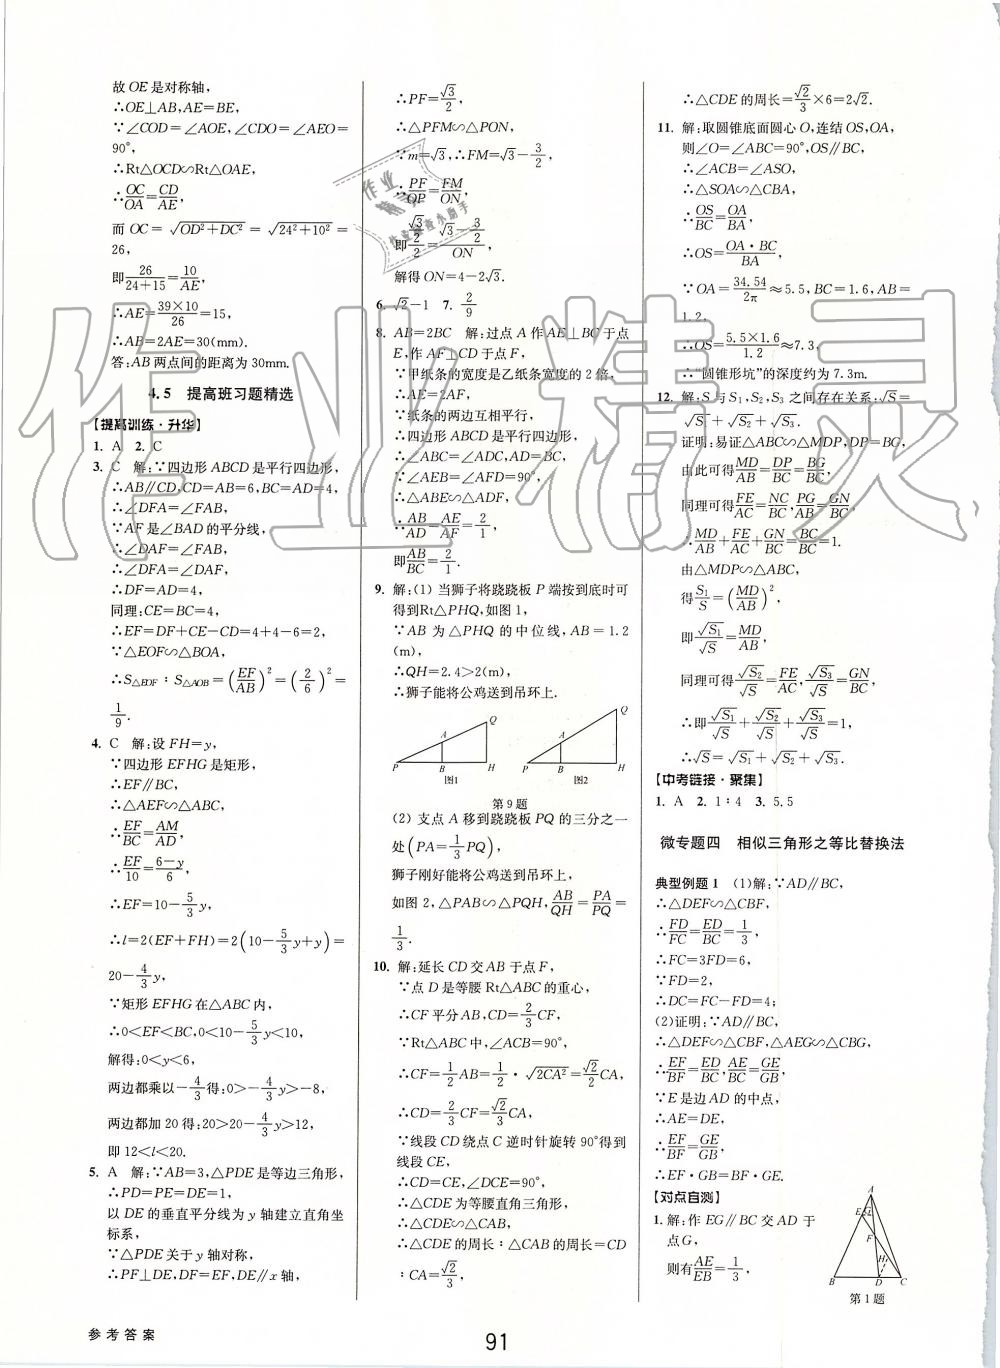 故OE是对称轴,
∴OE⊥AB,AE=BE,
∵∠COD=∠AOE,∠CDO=∠AEO=
90°,
∴Rt△OCD∽Rt△OAE,
∴OC/OA=CD/AE,
而 OC=√(OD²+DC²)=√(24²+10²)=
26,
即26/(24+15)=10/AE,
∴AE=(39×10)/26=15,
∴AB=2AE=30(mm).
答:AB两点间的距离为30mm.
4.5 提高班习题精选
【提高训练·升华】
1. A 2. C
3. C 解:∵四边形ABCD是平行四边形,
∴AB∥CD,CD=AB=6,BC=AD=4,
∴∠DFA=∠FAB,
∵AF是∠BAD的平分线,
∴∠DAF=∠FAB,
∴∠DFA=∠DAF,
∴DF=AD=4,
同理:CE=BC=4,
∴EF=DF+CE-CD=4+4-6=2,
∵△EOF∽△BOA,
∴S△EOF∶S△AOB=(EF/AB)²=(2/6)²=
1/9.
4. C 解:设FH=y,
∵四边形EFHG是矩形,
∴EF∥BC,
∴△AEF∽△ABC,
∴EF/BC=AM/AD,
∴EF/10=(6-y)/6,
∴EF=10-5/3y,
∴l=2(EF+FH)=2(10-5/3y+y)=
20-4/3y,
∵矩形EFHG在△ABC内,
∴0<EF<BC,0<10-5/3y<10,
解得:0<y<6,
两边都乘以-4/3得:0>-4/3y>-8,
两边都加20得:20>20-4/3y>12,
即12<l<20.
5. A 解:∵AB=3,△PDE是等边三角形,
∴PD=PE=DE=1,
以DE的垂直平分线为y轴建立直角坐
标系,
∵△PDE关于y轴对称,
∴PF⊥DE,DF=EF,DE∥x轴,
∴PF=√3/2,
∴△PFM∽△PON,
∵m=√3,∴FM=√3-3/2,
∴PF/OP=FM/ON,
即(√3/2)/2=(√3-3/2)/ON,
解得ON=4-2√3.
6. √2-1 7. 2/9
8. AB=2BC 解:过点A作AE⊥BC于点
E,作AF⊥CD于点F,
∵甲纸条的宽度是乙纸条宽度的2倍,
∴AE=2AF,
∵纸条的两边互相平行,
∴四边形ABCD是平行四边形,
∴∠ABC=∠ADC,
∵∠AEB=∠AFD=90°,
∴△ABE∽△ADF,
∴AB/AD=AE/AF=2/1,
即AB/BC=2/1.
9. 解:(1)当狮子将跷跷板P端按到底时可
得到Rt△PHQ,如图1,
∵AB为△PHQ的中位线,AB=1.2
(m),
∴QH=2.4>2(m),
∴狮子能将公鸡送到吊环上.
Q
A
P B H
图1
Q
A
P B H
图2
第9题
(2)支点A移到跷跷板PQ的三分之一
处(PA=1/3PQ),
狮子刚好能将公鸡送到吊环上,
如图2,△PAB∽△PQH,AB/QH=PA/PQ=
1/3.
10. 解:延长CD交AB于点F,
∵点D是等腰Rt△ABC的重心,
∴CF平分AB,CD=2/3CF,
∵Rt△ABC中,∠ACB=90°,
∴CF=1/2AB=1/2·√(2CA²)=√2/2CA,
∴CD=2/3CF=√2/3CA,
∵线段CD绕点C逆时针旋转90°得到
线段CE,
∴CD=CE,∠DCE=90°,
∴△CDE为等腰直角三角形,
∴△CDE∽△CAB,
∴△CDE的周长∶△CAB的周长=CD
∶CA=√2/3,
∴△CDE的周长=√2/3×6=2√2.
11. 解:取圆锥底面圆心O,连结OS,OA,
则∠O=∠ABC=90°,OS∥BC,
∴∠ACB=∠ASO,
∴△SOA∽△CBA,
∴OS/BC=OA/BA,
∴OS=(OA·BC)/BA,
∵OA=34.54/2π≈5.5,BC=1.6,AB=
1.2,
∴OS=(5.5×1.6)/1.2≈7.3,
∴“圆锥形坑”的深度约为7.3m.
12. 解:S与S₁,S₂,S₃之间存在关系:√S=
√S₁+√S₂+√S₃.
证明:易证△ABC∽△MDP,DP=BG,
由此可得MD/AB=DP/BC=BG/BC,
同理可得FE/AC=NC/BC,PG/AB=GN/BC,
∴MD/AB+FE/AC+GN/BC=BC/BC=1.
由△MDP∽△ABC,
得S₁/S=(MD/AB)²,
即√S₁/√S=MD/AB,
同理可得√S₂/√S=FE/AC,√S₃/√S=GN/BC,
∴即√S₁/√S+√S₂/√S+√S₃/√S=1,
∴√S=√S₁+√S₂+√S₃.
【中考链接·聚集】
1. A 2. 1∶4 3. 5.5
微专题四 相似三角形之等比替换法
典型例题1 (1)解:∵AD∥BC,
∴△DEF∽△CBF,
∴FD/FC=ED/BC=1/3,
∴FC=3FD=6,
∵FD=2,
∴DC=FC-FD=4;
(2)证明:∵AD∥BC,
∴△DEF∽△CBF,△AEG∽△CBG,
∴EF/BF=ED/BC,AE/BC=GE/GB,
∵E是边AD的中点,
∴AE=DE,
∴EF/BF=GE/GB,
∴EF·GB=BF·GE.
【对点自测】
1. 解:作EG∥BC交AD于
点G,
则有AE/EB=1/3,
A
E G
F
H
B D C
第1题
参考答案
91
作业精灵